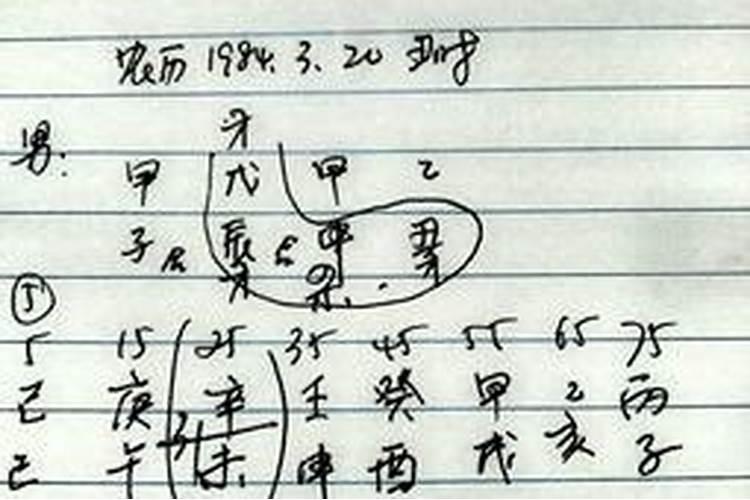 农历 1984.3.20 丑时
才
男: 甲 戊 甲 乙
子 辰 申 丑
才 杀 才
5
5 15 25 35 45 55 65 75
己 庚 辛 壬 癸 甲 乙 丙
巳 午 未 申 酉 戌 亥 子